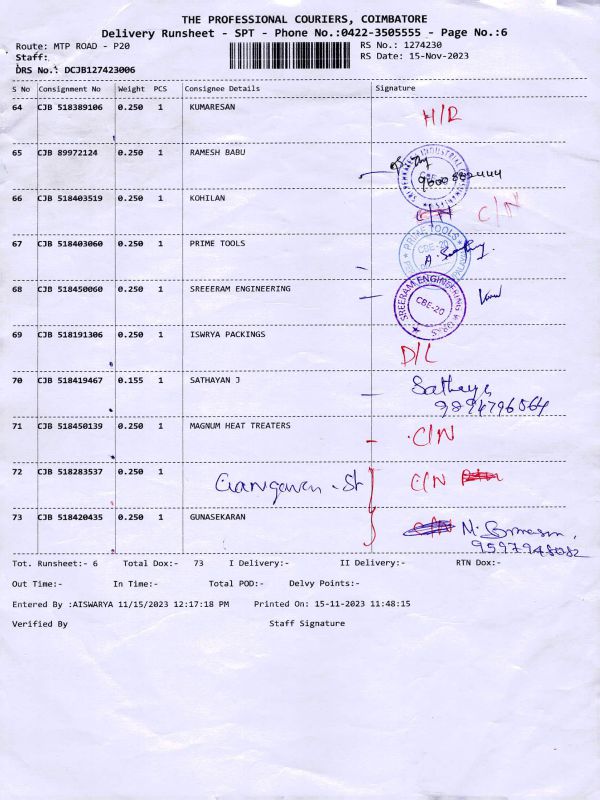 THE PROFESSIONAL COURIERS, COIMBATORE
Delivery Runsheet - SPT - Phone No.:0422-3505555 - Page No.:6
Route: MTP ROAD - P20
RS No.: 1274230
Staff:
RS Date: 15-Nov-2023
DRS No.: DCJB127423006
S No Consignment No Weight PCS Consignee Details Signature
64 CJB 518389106 0.250 1 KUMARESAN H/R
65 CJB 89972124 0.250 1 RAMESH BABU
66 CJB 518403519 0.250 1 KOHILAN C/N C/N
67 CJB 518403060 0.250 1 PRIME TOOLS PRIME TOOLS CBE-20
68 CJB 518450060 0.250 1 SREEERAM ENGINEERING SREERAM ENGINEERING WORKS CBE-20
69 CJB 518191306 0.250 1 ISWRYA PACKINGS D/L
70 CJB 518419467 0.155 1 SATHAYAN J
9894796564
71 CJB 518450139 0.250 1 MAGNUM HEAT TREATERS C/N
72 CJB 518283537 0.250 1 C/N
73 CJB 518420435 0.250 1 GUNASEKARAN
9597948082
Tot. Runsheet:- 6 Total Dox:- 73 I Delivery:- II Delivery:- RTN Dox:-
Out Time:- In Time:- Total POD:- Delvy Points:-
Entered By :AISWARYA 11/15/2023 12:17:18 PM Printed On: 15-11-2023 11:48:15
Verified By Staff Signature